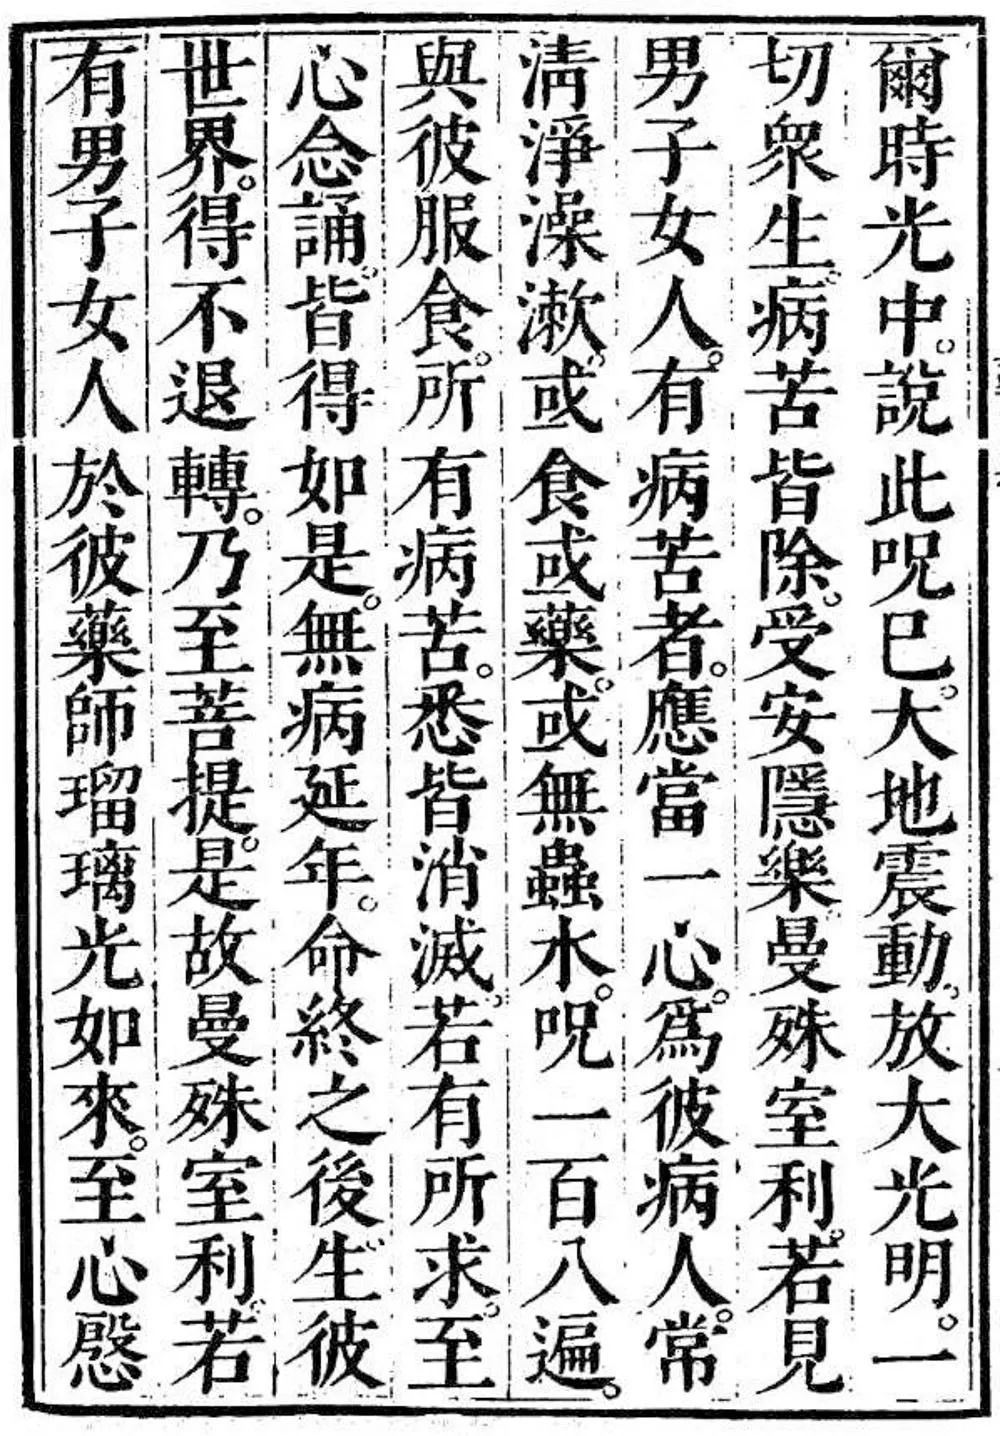 爾時光中。說此呪巳。大地震動。放大光明。一
切衆生。病苦皆除。受安隱樂。曼殊室利。若見
男子女人。有病苦者。應當一心。爲彼病人。常
淸淨澡漱。或食或藥。或無蟲水。呪一百八遍。
與彼服食。所有病苦。悉皆消滅。若有所求。至
心念誦。皆得如是。無病延年。命終之後。生彼
世界。得不退轉。乃至菩提。是故曼殊室利。若
有男子女人於彼藥師瑠璃光如來。至心慇